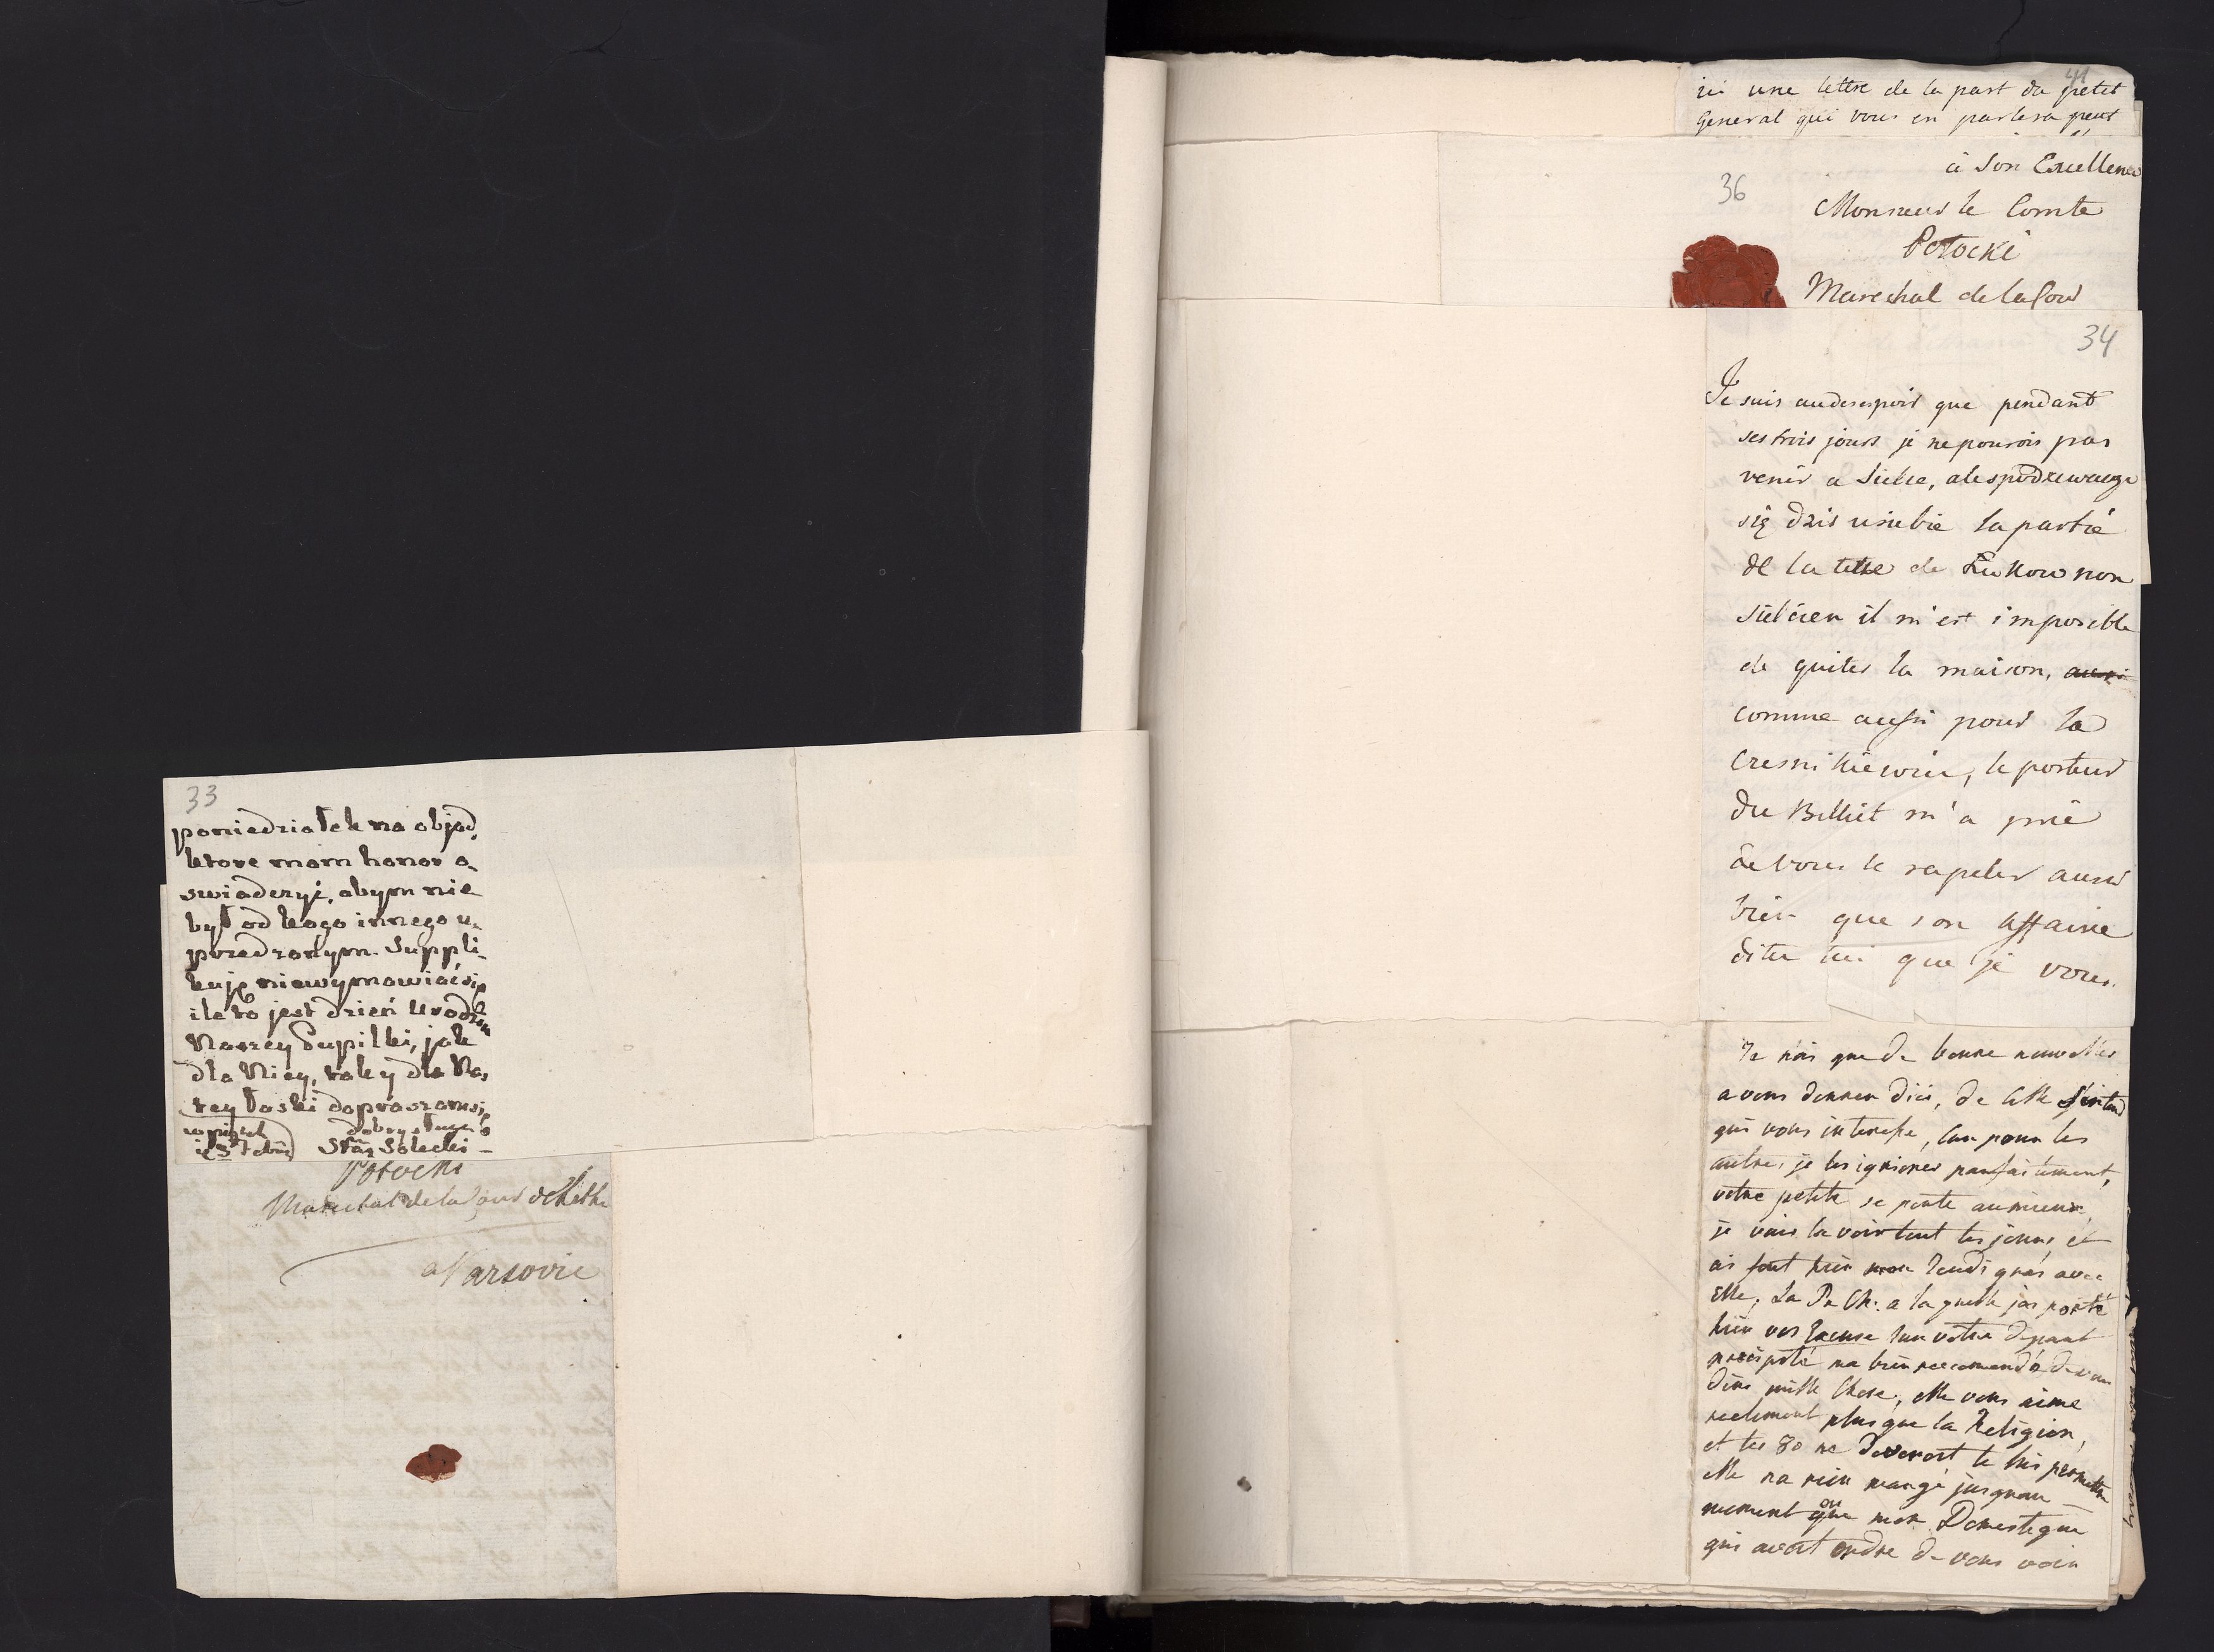 33
poniedziałek na objad,
ktore mam honor o„
swiadczyć, abym nie
był od kogo innego u„
przedzonym. Suppli„
kuję niewymowiać się
ile to jest dzień Urodzin
Naszey Pupilki, jak
dla Niey, tak y dla Na„
szey łaski dopraszam się
w piątek dobry sługa
Stār Solecki
Potocki
Marechal de la Cour
a Varsovie
41
ici une lettre de la part du petit
General qui vous en parlera peut
36
à Son Excellence
Monsieur le Comte
Potocki
Marechal de la Cour
34
Je suis audesespoir que pendant
ses trois jours je ne pouvois pas
venir a Sielce, ale spodziewaige
się dzis u siebie la partie
de la tette de Łukow non
Sielcien il m'est imposible
de quiter la maison, aussi
comme aussi pour la
le porteur
du Billiet m'a prié
de vous le rapeler aussi
bien que son Affaire
dite lui que je vous
Je n'ais que de bonne nouvelles
a vous donner d'ici, de Celle
qui vous interesse, Car pour les
autres je les ignores parfaitement,
votre petite se porte aumieux,
je vais la voir tout les jours, et
ai fait hier mon Jeudi gras avec
Elle, La Pe Ch: a laquelle jai porté
hier vos Excuse sur votre depart
precipité ma bien recomendé de vous
dire mille Chose, elle vous aime
reelement plus que la Religion,
et les 80 ne devroit le lui permettre
elle na rien mangé jusquau
moment ou que mon Domestique
qui avoit ordre de vous voir